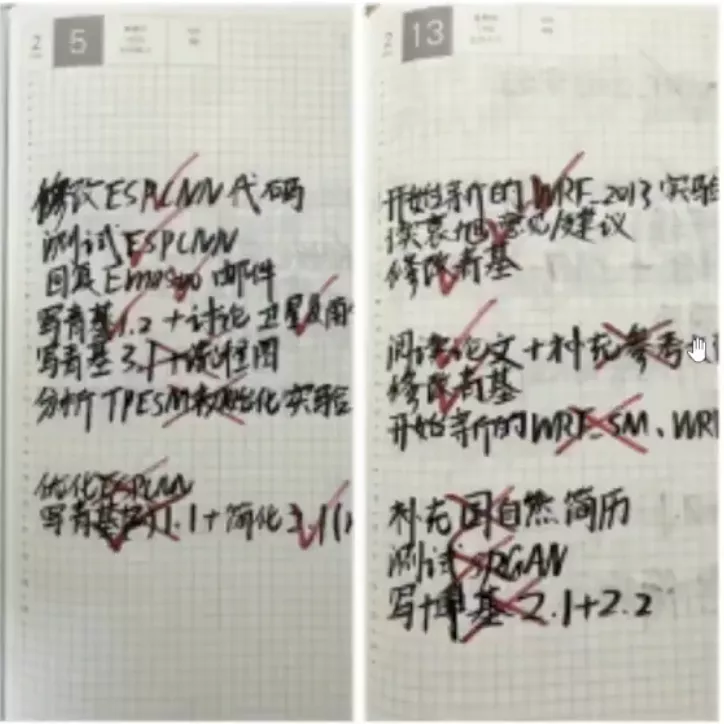 5
修改ESPCNN代码
测试ESPCNN
回复Emosyo邮件
写青基1.2+讨论卫星及雨
写青基3.1+流程图
分析TPESM初始化实验
优化ESPCNN
写青基1.1+简化3.1
13
开始新的WRF_2013实验
读袁旭意见/建议
修改青基
阅读论文+补充参考
修改青基
开始新的WRF_SM、WRF
补充国自然简历
测试SRGAN
写博基2.1+2.2